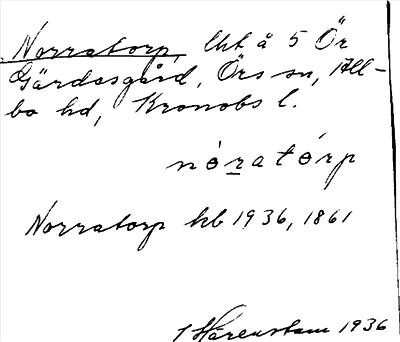 Norratorp, lht å 5 Ör
Gärdesgård, Örs sn, All-
bo hd, Kronobs l.
nòratórp
Norratorp kb 1936, 1861
Harenstam 1936